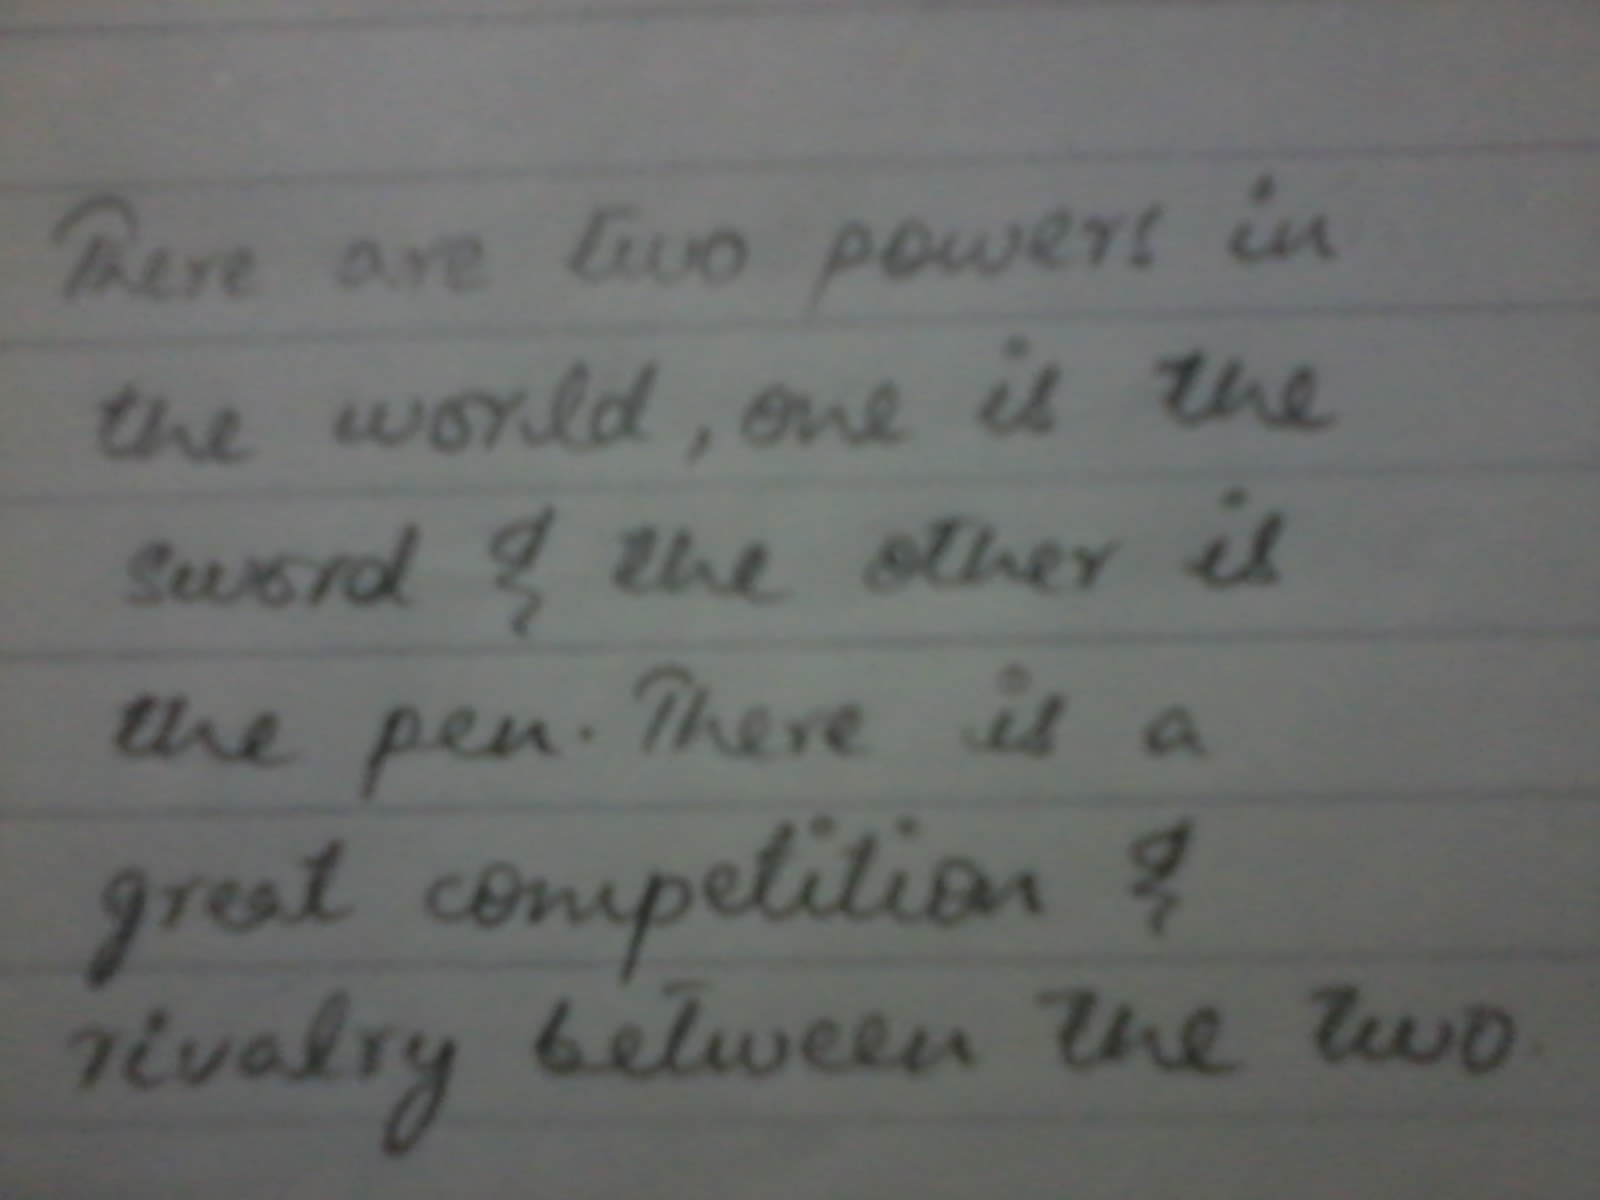 There are two powers in
the world, one is the
sword & the other is
the pen. There is a
great competition &
rivalry between the two.